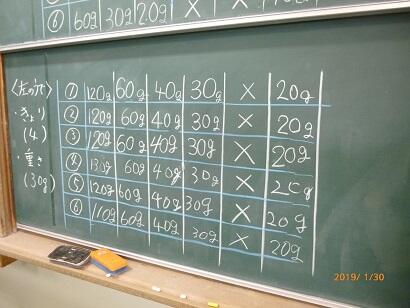 ⑥ 60g 30g 20g × ×
<左のうで>
・きょり
(4)
・重さ
(30g)
① 120g 60g 40g 30g × 20g
② 120g 60g 40g 30g × 20g
③ 120g 60g 40g 30g × 20g
④ 130g 60g 40g 30g × 20g
⑤ 120g 60g 40g 30g × 20g
⑥ 110g 60g 40g 30g × 20g
2019/ 1/30